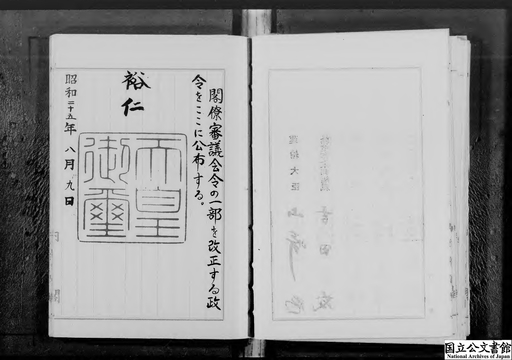 閣僚審議会令の一部を改正する政
令をここに公布する。
裕仁
天皇
御璽
昭和二十五年 八月 九日
大臣
吉田
国立公文書館
National Archives of Japan